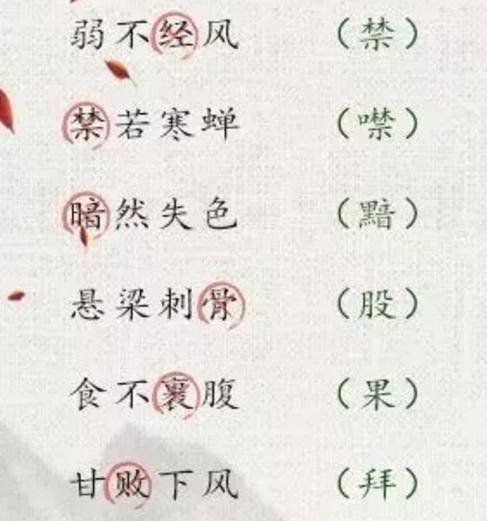 弱不经风 （禁）
禁若寒蝉 （噤）
暗然失色 （黯）
悬梁刺骨 （股）
食不裹腹 （果）
甘败下风 （拜）